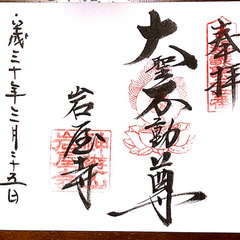 奉拝
大聖不動尊
岩屋寺
三十年三月二十五日